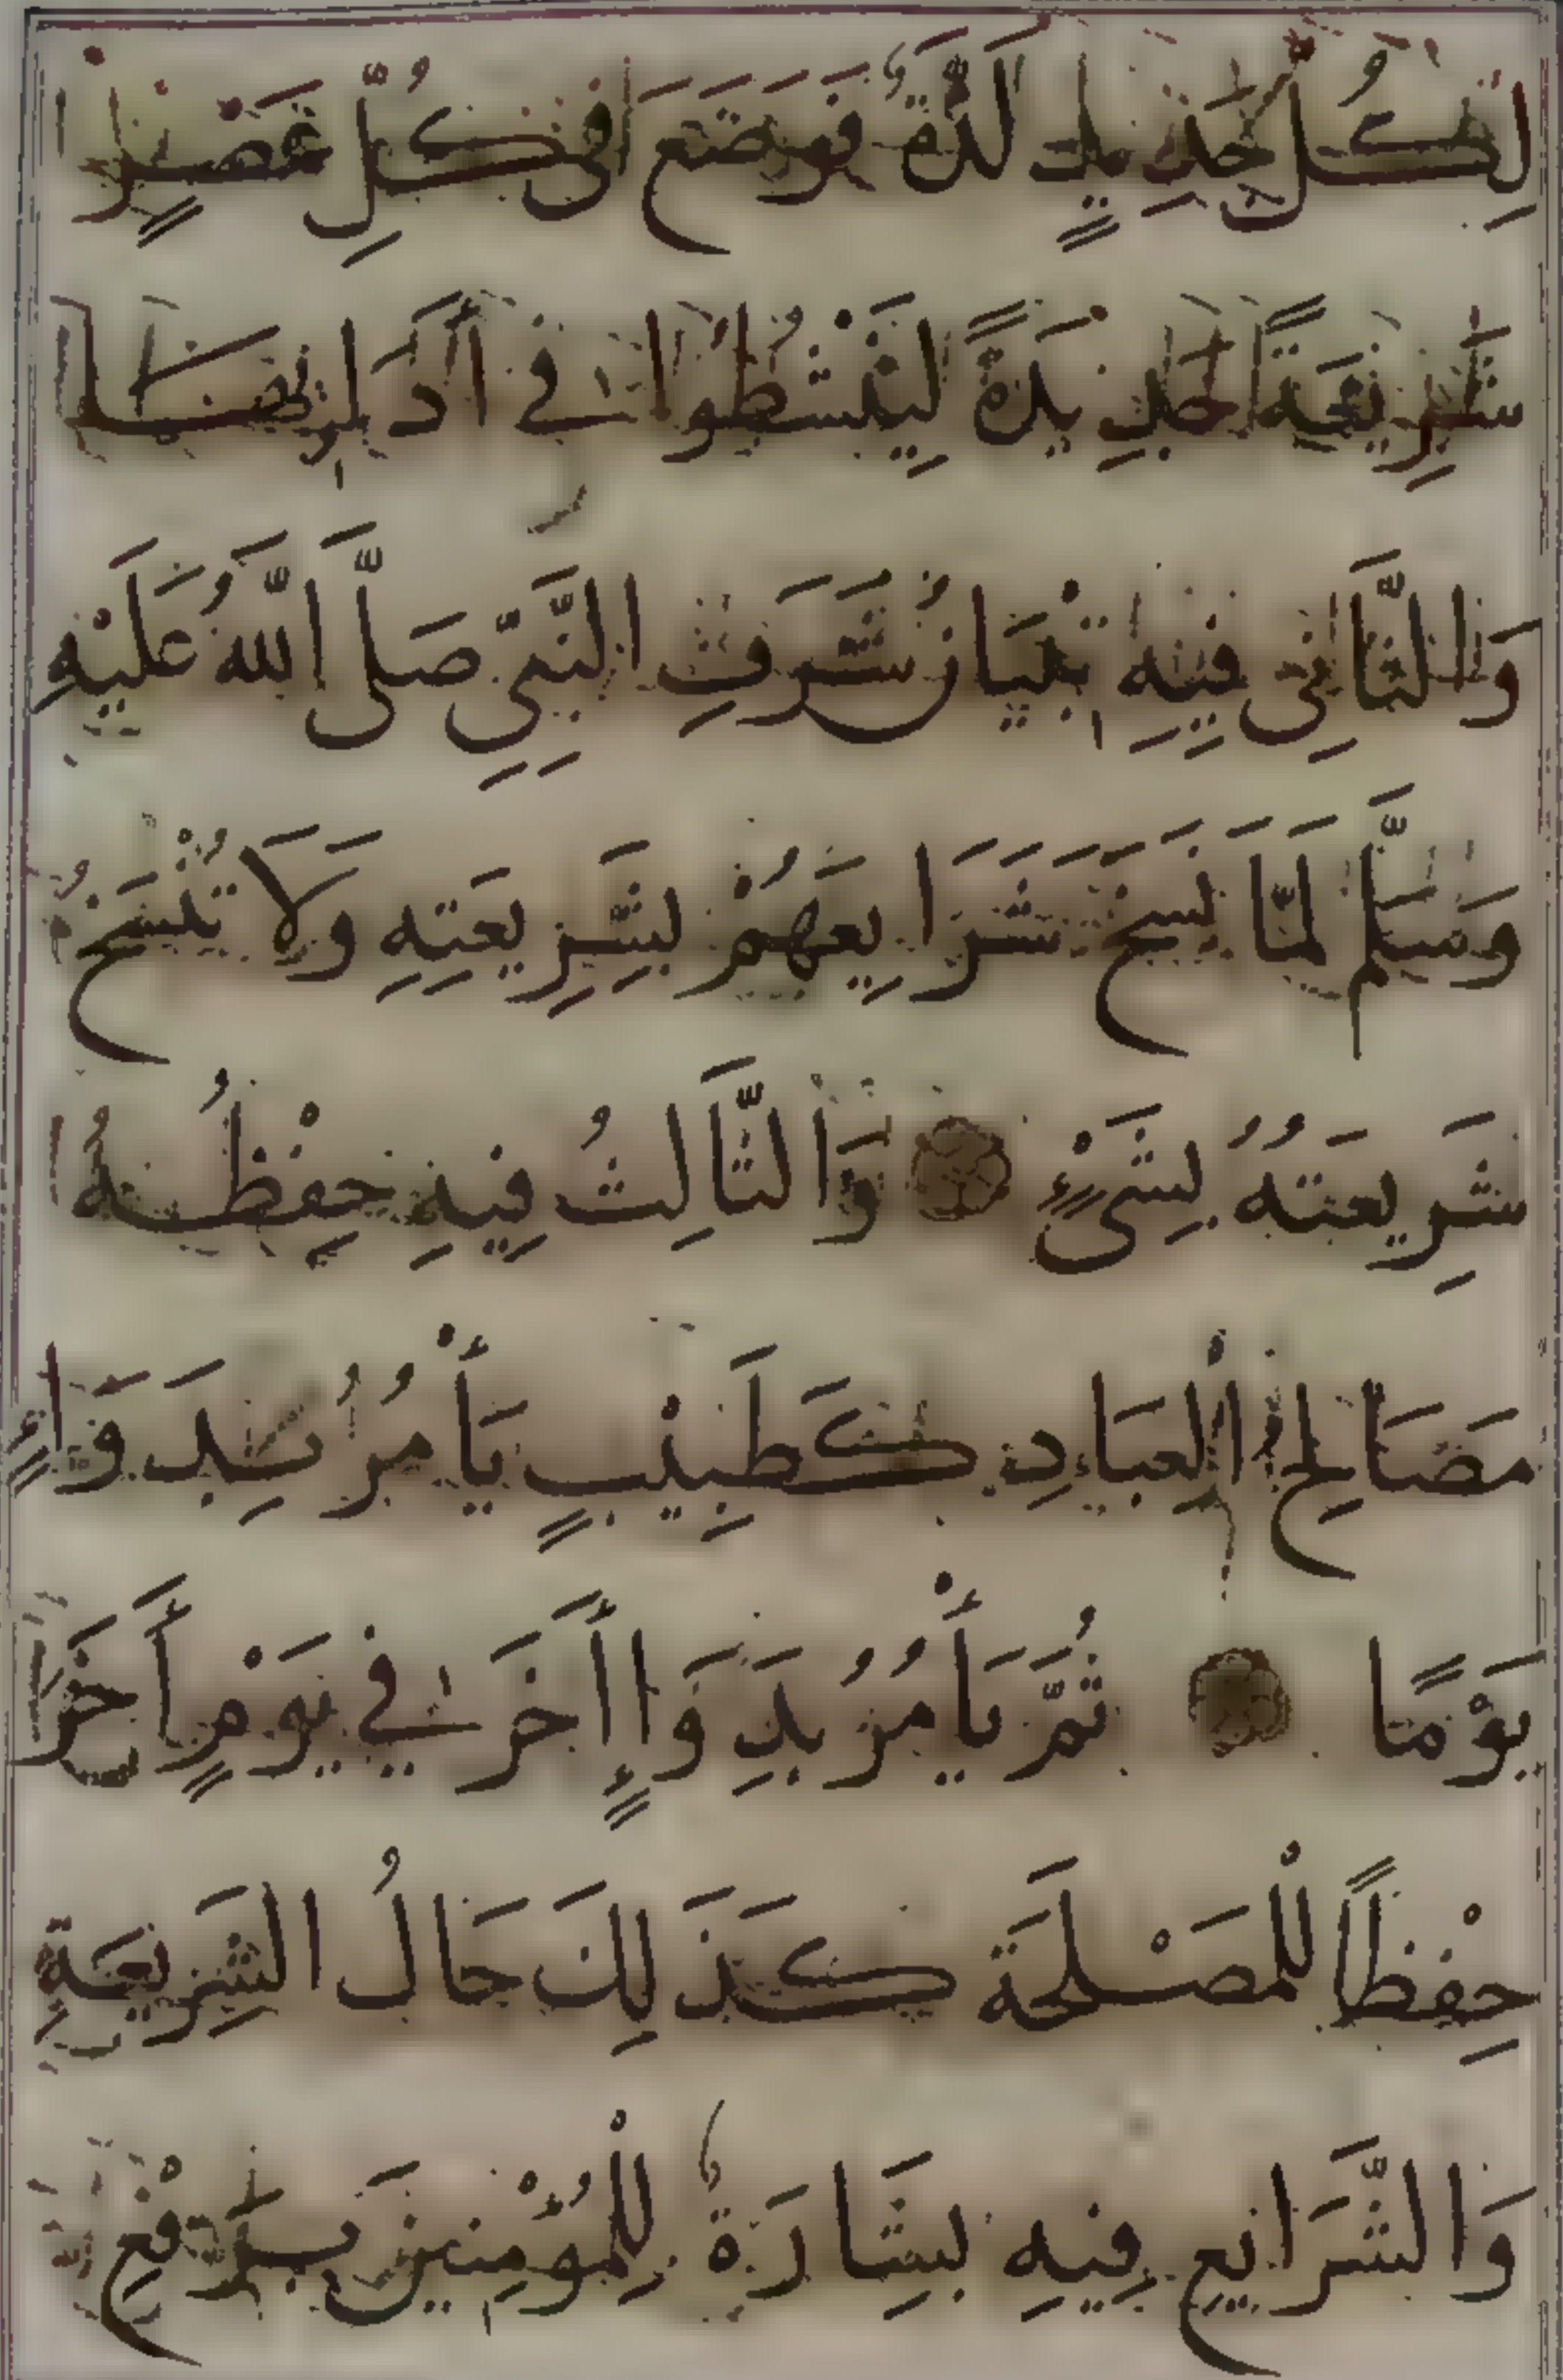 لِكُلِّ جَدِيدٍ لَذَّةٌ فَوَضَعَ فِي كُلِّ عَصْرٍ
شَرِيعَةً جَدِيدَةً لِيَنْشَطُوا فِي أَدَائِهَا
وَالثَّانِي فِيهِ تِبْيَانُ شَرَفِ النَّبِيِّ صَلَّى اللّٰهُ عَلَيْهِ
وَسَلَّمَ لَمَّا نَسَخَ شَرَايِعَهُمْ بِشَرِيعَتِهِ وَلَا تُنْسَخُ
شَرِيعَتُهُ بِشَيْءٍ وَالثَّالِثُ فِيهِ حِفْظُهُ
مَصَالِحَ الْعِبَادِ كَطَبِيبٍ يَأْمُرُ بِدَوَاءٍ
يَوْمًا ثُمَّ يَأْمُرُ بِدَوَاإٍ أَخَرَ فِي يَوْمٍ أَخَرَ
حِفْظًا لِلْمَصْلَحَةِ كَذَلِكَ حَالُ الشَّرِيعَةِ
وَالشَّرَايِعِ فِيهِ بِشَارَةٌ لِلْمُؤْمِنِينَ بِرَفْعِ